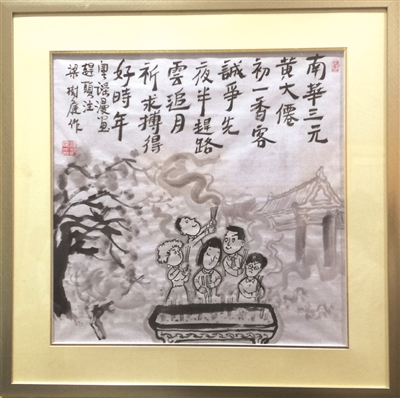 南華三元
黃大僊
初一香客
誠爭先
夜半趕路
雲追月
祈求搏得
好時年
粵謡漫画
趕頭注
梁樹庭作